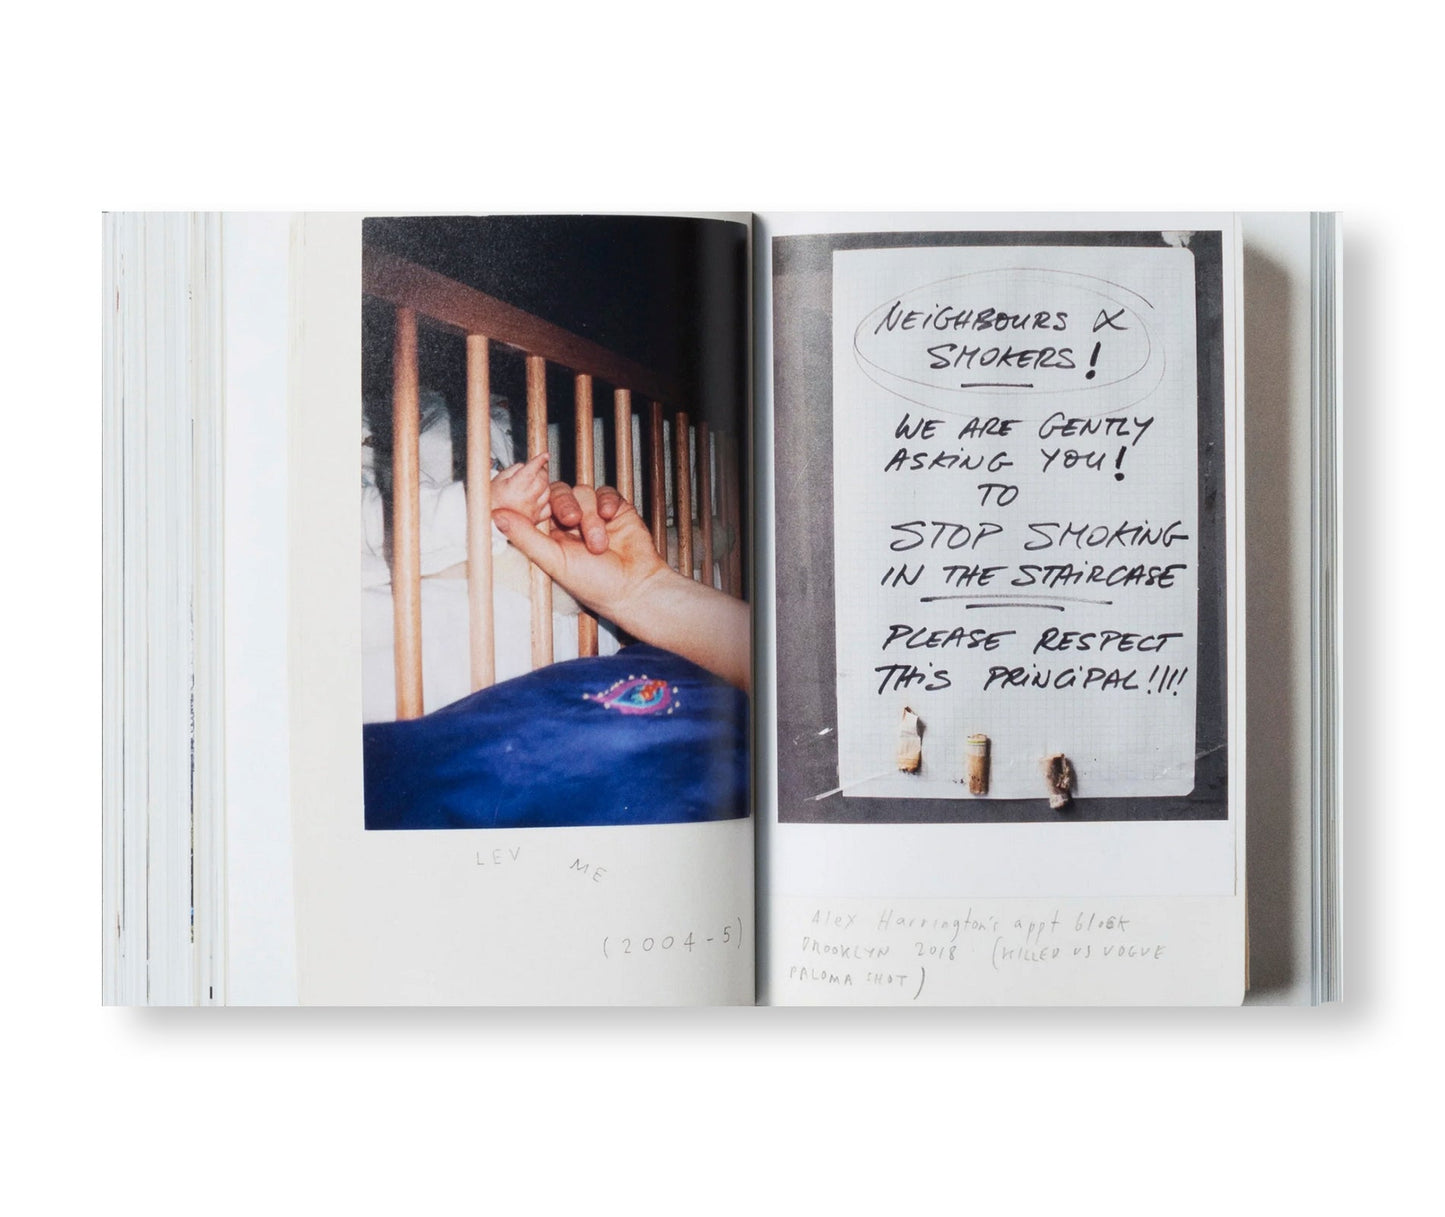 LEV ME
(2004-5)
NEIGHBOURS &
SMOKERS!
WE ARE GENTLY
ASKING YOU!
TO
STOP SMOKING
IN THE STAIRCASE
PLEASE RESPECT
THIS PRINCIPAL!!!!
Alex Harrington's appt block
BROOKLYN 2018. (KILLED US VOGUE
PALOMA SHOT)